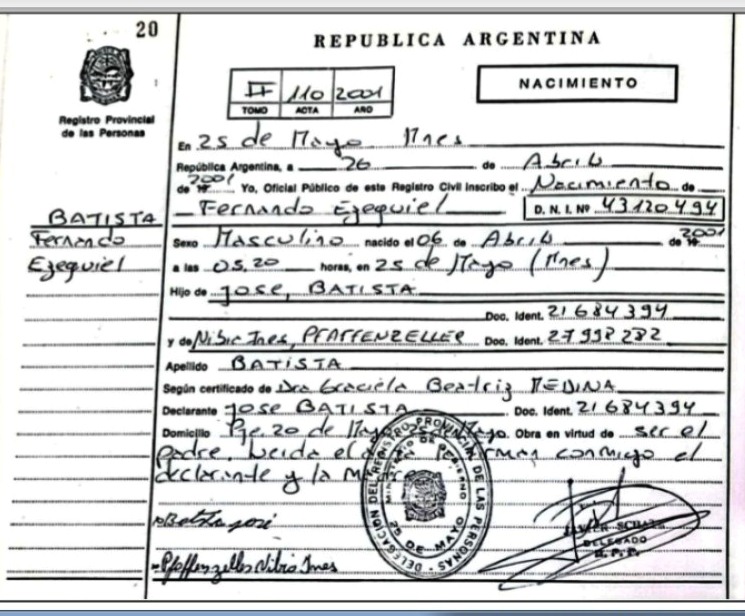 20
REPUBLICA ARGENTINA
II 110 2001
TOMO ACTA AÑO
NACIMIENTO
Registro Provincial
de las Personas
En 25 de Mayo Mnes
República Argentina, a 26 de Abril
de 2001 Yo, Oficial Público de este Registro Civil inscribo el Nacimiento de
Fernando Ezequiel D. N. I. Nº 43120494
BATISTA
Fernando
Ezequiel
Sexo Masculino nacido el 06 de Abril de 2001
a las 05,20 horas, en 25 de Mayo (Mnes)
Hijo de Jose, BATISTA
Doc. Ident. 21684394
y de Nibia Ines, PFAFFENZELLER Doc. Ident. 27998282
Apellido BATISTA
Según certificado de Dra Graciela Beatriz MEDINA
Declarante Jose BATISTA Doc. Ident. 21684394
Domicilio Pje. 20 de 25 de Mayo. Obra en virtud de ser el
padre. Leida el conmigo el
declarante y la
Batista José
Pfaffenzeller Nibia Ines
DELEGACION DEL REGISTRO PROVINCIAL DE LAS PERSONAS
MINISTERIO DE GOBIERNO
25 DE MAYO
DELEGADO
R.P.P.